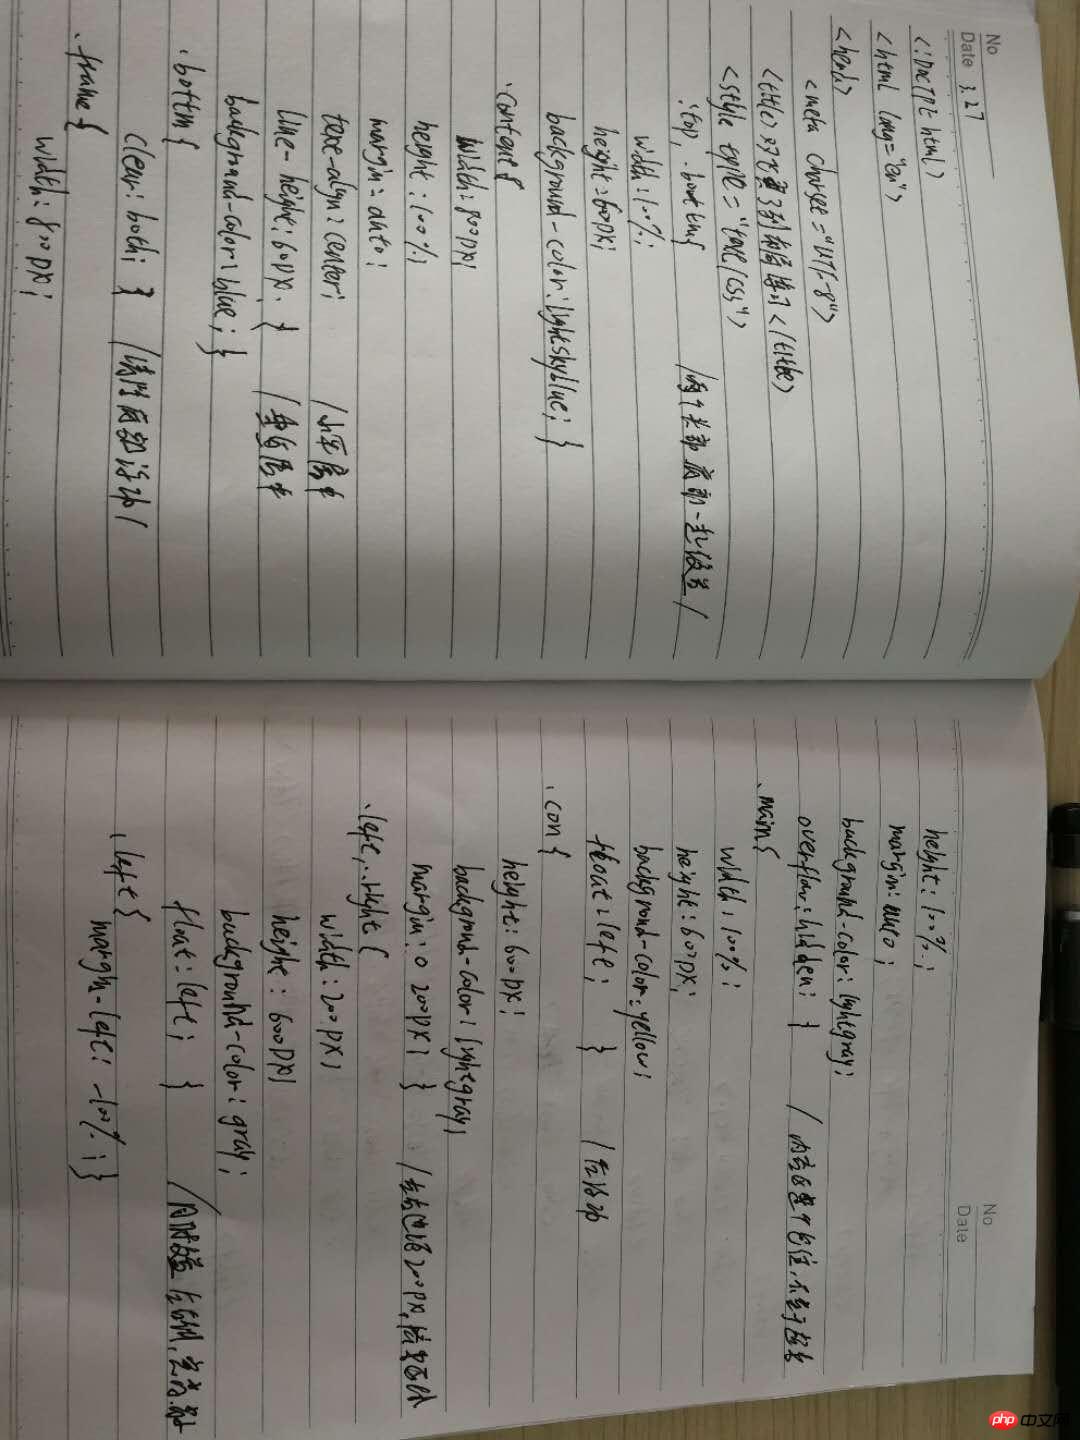 No
Date 3.27
<!DOCTYPE html>
<html lang="en">
<head>
<meta charset="UTF-8">
<title>双飞翼三列布局练习</title>
<style type="text/css">
.top, .bottm{ /两个长部底部一起设置/
width:100%;
height:60px;
background-color:lightskyblue; }
.content{
width:800px;
height:100%;
margin:auto;
text-align:center; /水平居中
line-height:60px. } /垂直居中
background-color:blue; }
.bottm{
clear:both; } /清除底部浮动/
.frame{
width:800px;
No
Date
height:100%.;
margin:auto;
background-color:lightgray;
overflow:hidden; } /内容区整个包住,
.main{
width:100%;
height:600px;
background-color:yellow;
float:left; } /左浮动
.con{
height:600px;
background-color:lightgray;
margin:0 200px; } /左右边距200px,
.left,.right{
width:200px;
height:600px;
background-color:gray;
float:left; } /同时设置左右侧,
.left{
margin-left:-100%;}
php 中文网